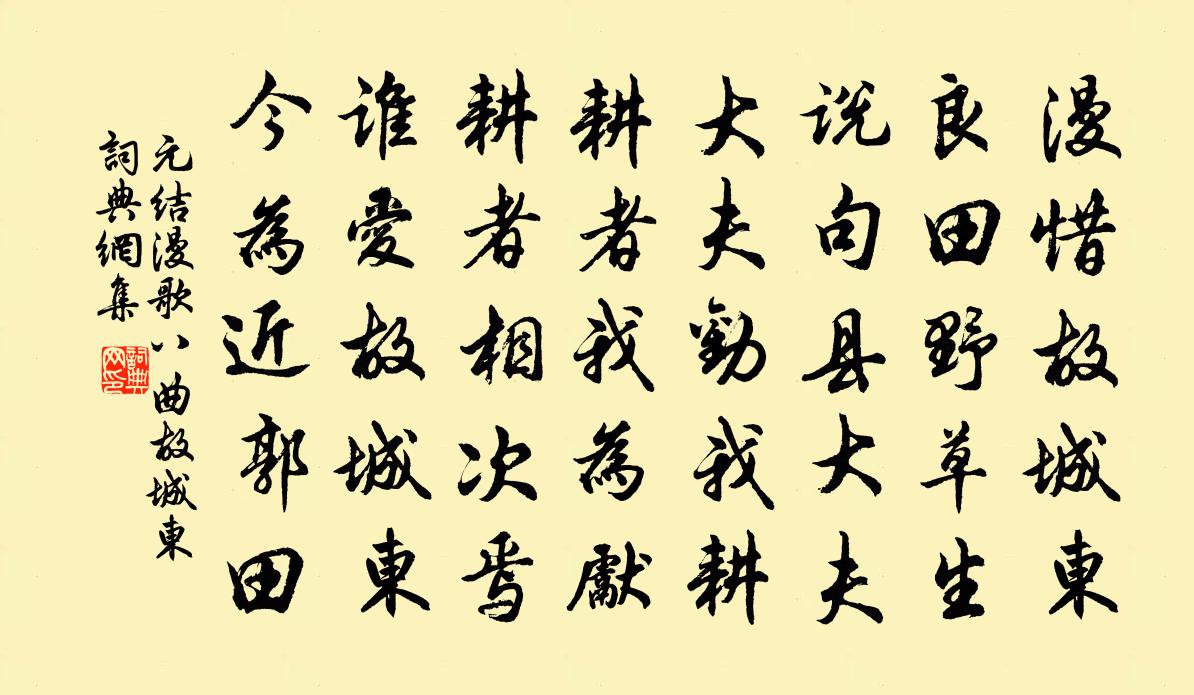 漫惜故城東
良田野草生
説句县大夫
大夫勸我耕
耕者我為獻
耕者相次焉
誰愛故城東
今為近郭田
元結漫歌八曲故城東
詞典網集
詞典
网印